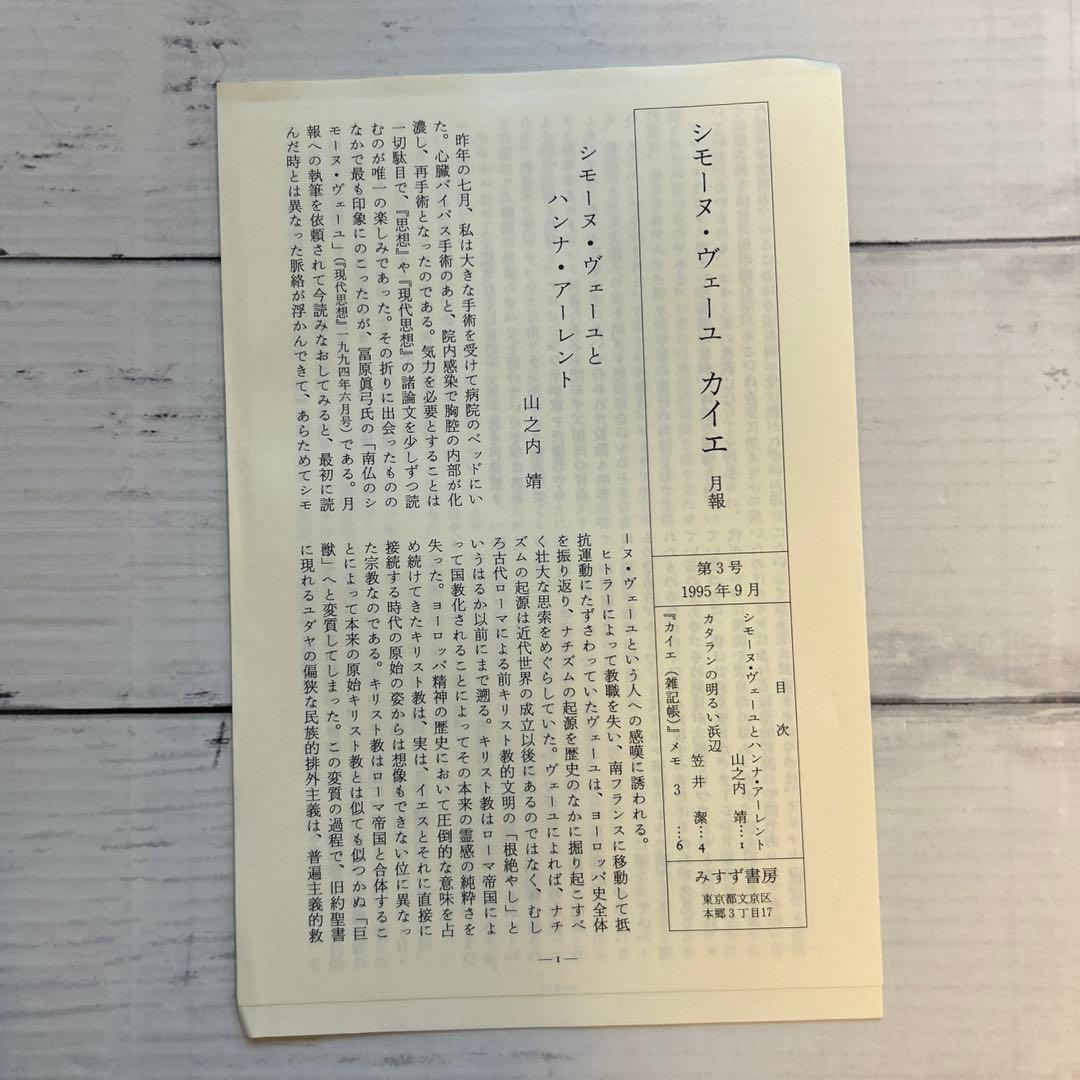 シモーヌ・ヴェーユ カイエ 月報
第3号
1995年9月
目次
シモーヌ・ヴェーユとハンナ・アーレント
山之内 靖…1
カタランの明るい浜辺
笠井 潔…4
『カイエ(雑記帳)』メモ 3 …6
みすず書房
東京都文京区
本郷3丁目17
シモーヌ・ヴェーユと
ハンナ・アーレント
山之内 靖
昨年の七月、私は大きな手術を受けて病院のベッドにい
た。心臓バイパス手術のあと、院内感染で胸腔の内部が化
濃し、再手術となったのである。気力を必要とすることは
一切駄目で、『思想』や『現代思想』の諸論文を少しずつ読
むのが唯一の楽しみであった。その折りに出会ったものの
なかで最も印象にのこったのが、冨原眞弓氏の「南仏のシ
モーヌ・ヴェーユ」(『現代思想』一九九四年六月号)である。月
報への執筆を依頼されて今読みなおしてみると、最初に読
んだ時とは異なった脈絡が浮かんできて、あらためてシモ
ーヌ・ヴェーユという人への感嘆に誘われる。
ヒトラーによって教職を失い、南フランスに移動して抵
抗運動にたずさわっていたヴェーユは、ヨーロッパ史全体
を振り返り、ナチズムの起源を歴史のなかに掘り起こすべ
く壮大な思索をめぐらしていた。ヴェーユによれば、ナチ
ズムの起源は近代世界の成立以後にあるのではなく、むし
ろ古代ローマによる前キリスト教的文明の「根絶やし」と
いうはるか以前にまで遡る。キリスト教はローマ帝国によ
って国教化されることによってその本来の霊感の純粋さを
失った。ヨーロッパ精神の歴史において圧倒的な意味を占
め続けてきたキリスト教は、実は、イエスとそれに直接に
接続する時代の原始の姿からは想像もできない位に異なっ
た宗教なのである。キリスト教はローマ帝国と合体するこ
とによって本来の原始キリスト教とは似ても似つかぬ「巨
獣」へと変質してしまった。この変質の過程で、旧約聖書
に現れるユダヤの偏狭な民族的排外主義は、普遍主義的救
—1—